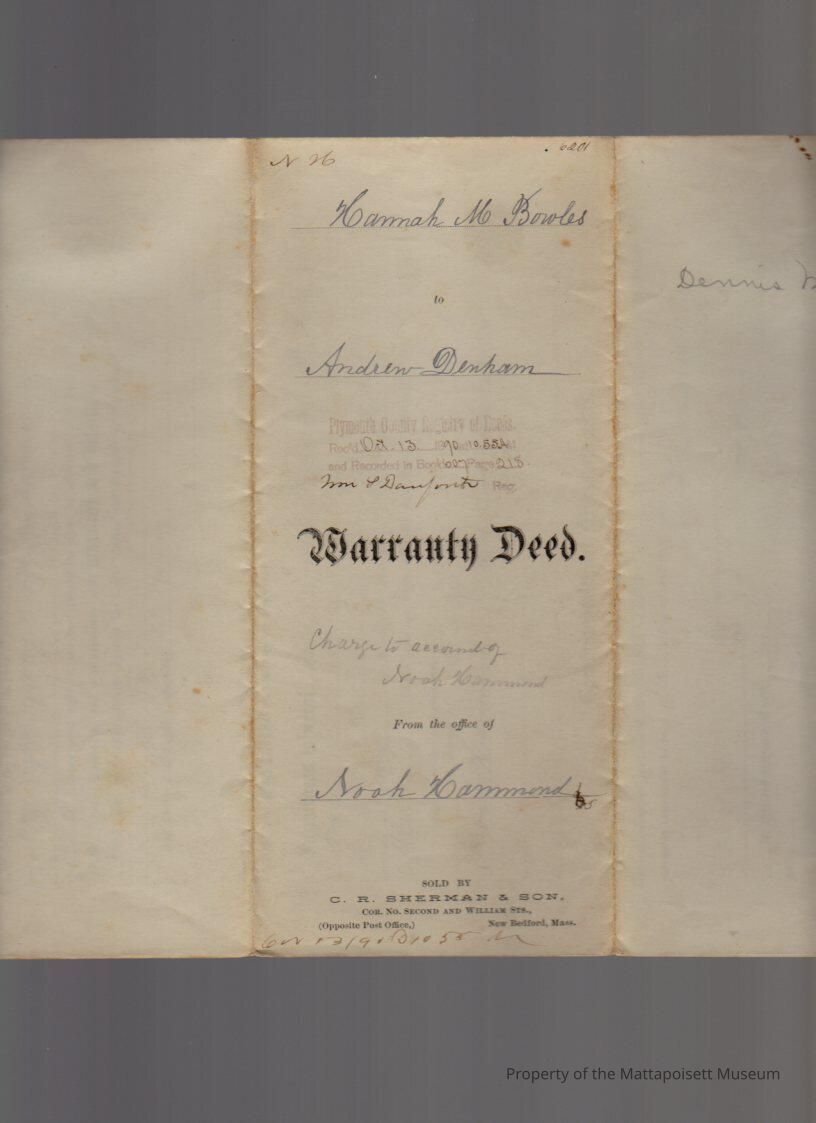 N 26
6201
Hannah M Bowles
to
Andrew Denham
Plymouth County Registry of Deeds.
Rec'd Oct. 13. 1890 at 10.55 AM
and Recorded in Book 607 Page 218.
Wm S Danforth Reg.
Warranty Deed.
Charge to account of
Noah Hammond
From the office of
Noah Hammond
SOLD BY
C. R. SHERMAN & SON,
COR. NO. SECOND AND WILLIAM STS.,
(Opposite Post Office,) New Bedford, Mass.
Dennis
Property of the Mattapoisett Museum